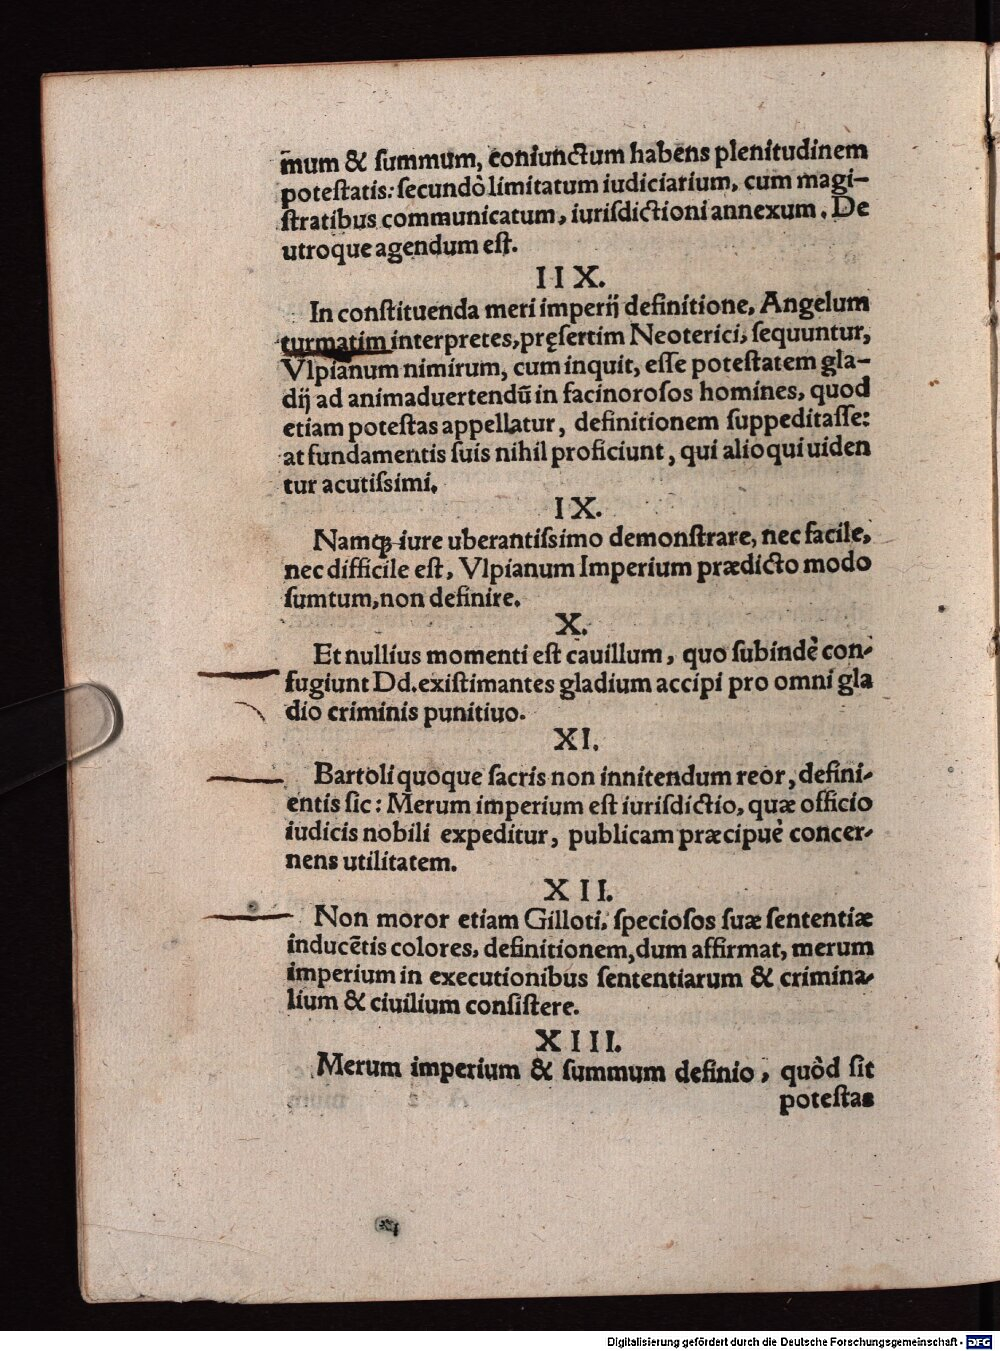 mum & ſummum, coniunctum habens plenitudinem
poteſtatis: ſecundò limitatum iudiciarium, cum magi-
ſtratibus communicatum, iuriſdictioni annexum. De
utroque agendum eſt.
IIX.
In conſtituenda meri imperij definitione, Angelum
turmatim interpretes, pręſertim Neoterici, ſequuntur,
Vlpianum nimirum, cum inquit, eſſe poteſtatem gla-
dij ad animaduertendũ in facinoroſos homines, quod
etiam poteſtas appellatur, definitionem ſuppeditaſſe:
at fundamentis ſuis nihil proficiunt, qui alioqui uiden
tur acutiſsimi.
IX.
Namq; iure uberantiſsimo demonſtrare, nec facile,
nec difficile eſt, Vlpianum Imperium prædicto modo
ſumtum, non definire.
X.
Et nullius momenti eſt cauillum, quo ſubindè con-
fugiunt Dd. exiſtimantes gladium accipi pro omni gla
dio criminis punitiuo.
XI.
Bartoli quoque ſacris non innitendum reor, defini-
entis ſic: Merum imperium eſt iuriſdictio, quæ officio
iudicis nobili expeditur, publicam præcipuè concer-
nens utilitatem.
XII.
Non moror etiam Gilloti, ſpecioſos ſuæ ſententiæ
inducẽtis colores, definitionem, dum affirmat, merum
imperium in executionibus ſententiarum & crimina-
lium & ciuilium conſiſtere.
XIII.
Merum imperium & ſummum definio, quòd ſit
poteſtas
Digitalisierung gefördert durch die Deutsche Forschungsgemeinschaft - DFG